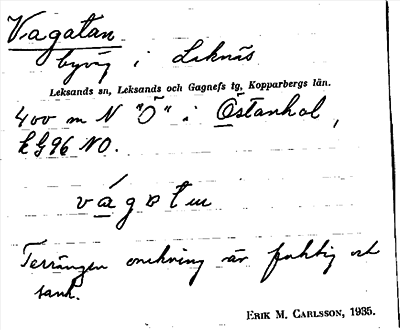 Vagatan
byväg i Leknäs
Leksands sn, Leksands och Gagnefs tg, Kopparbergs län.
400 m N "Ö" i Östanhol,
kG96 NO.
vágatn
Terrängen omkring är fuktig och
sank.
ERIK M. CARLSSON, 1935.